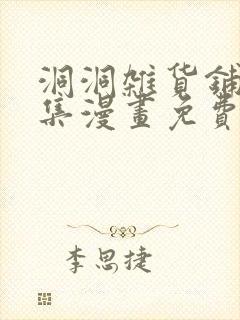 洞洞雜貨鋪
集漫畫免費
李思捷